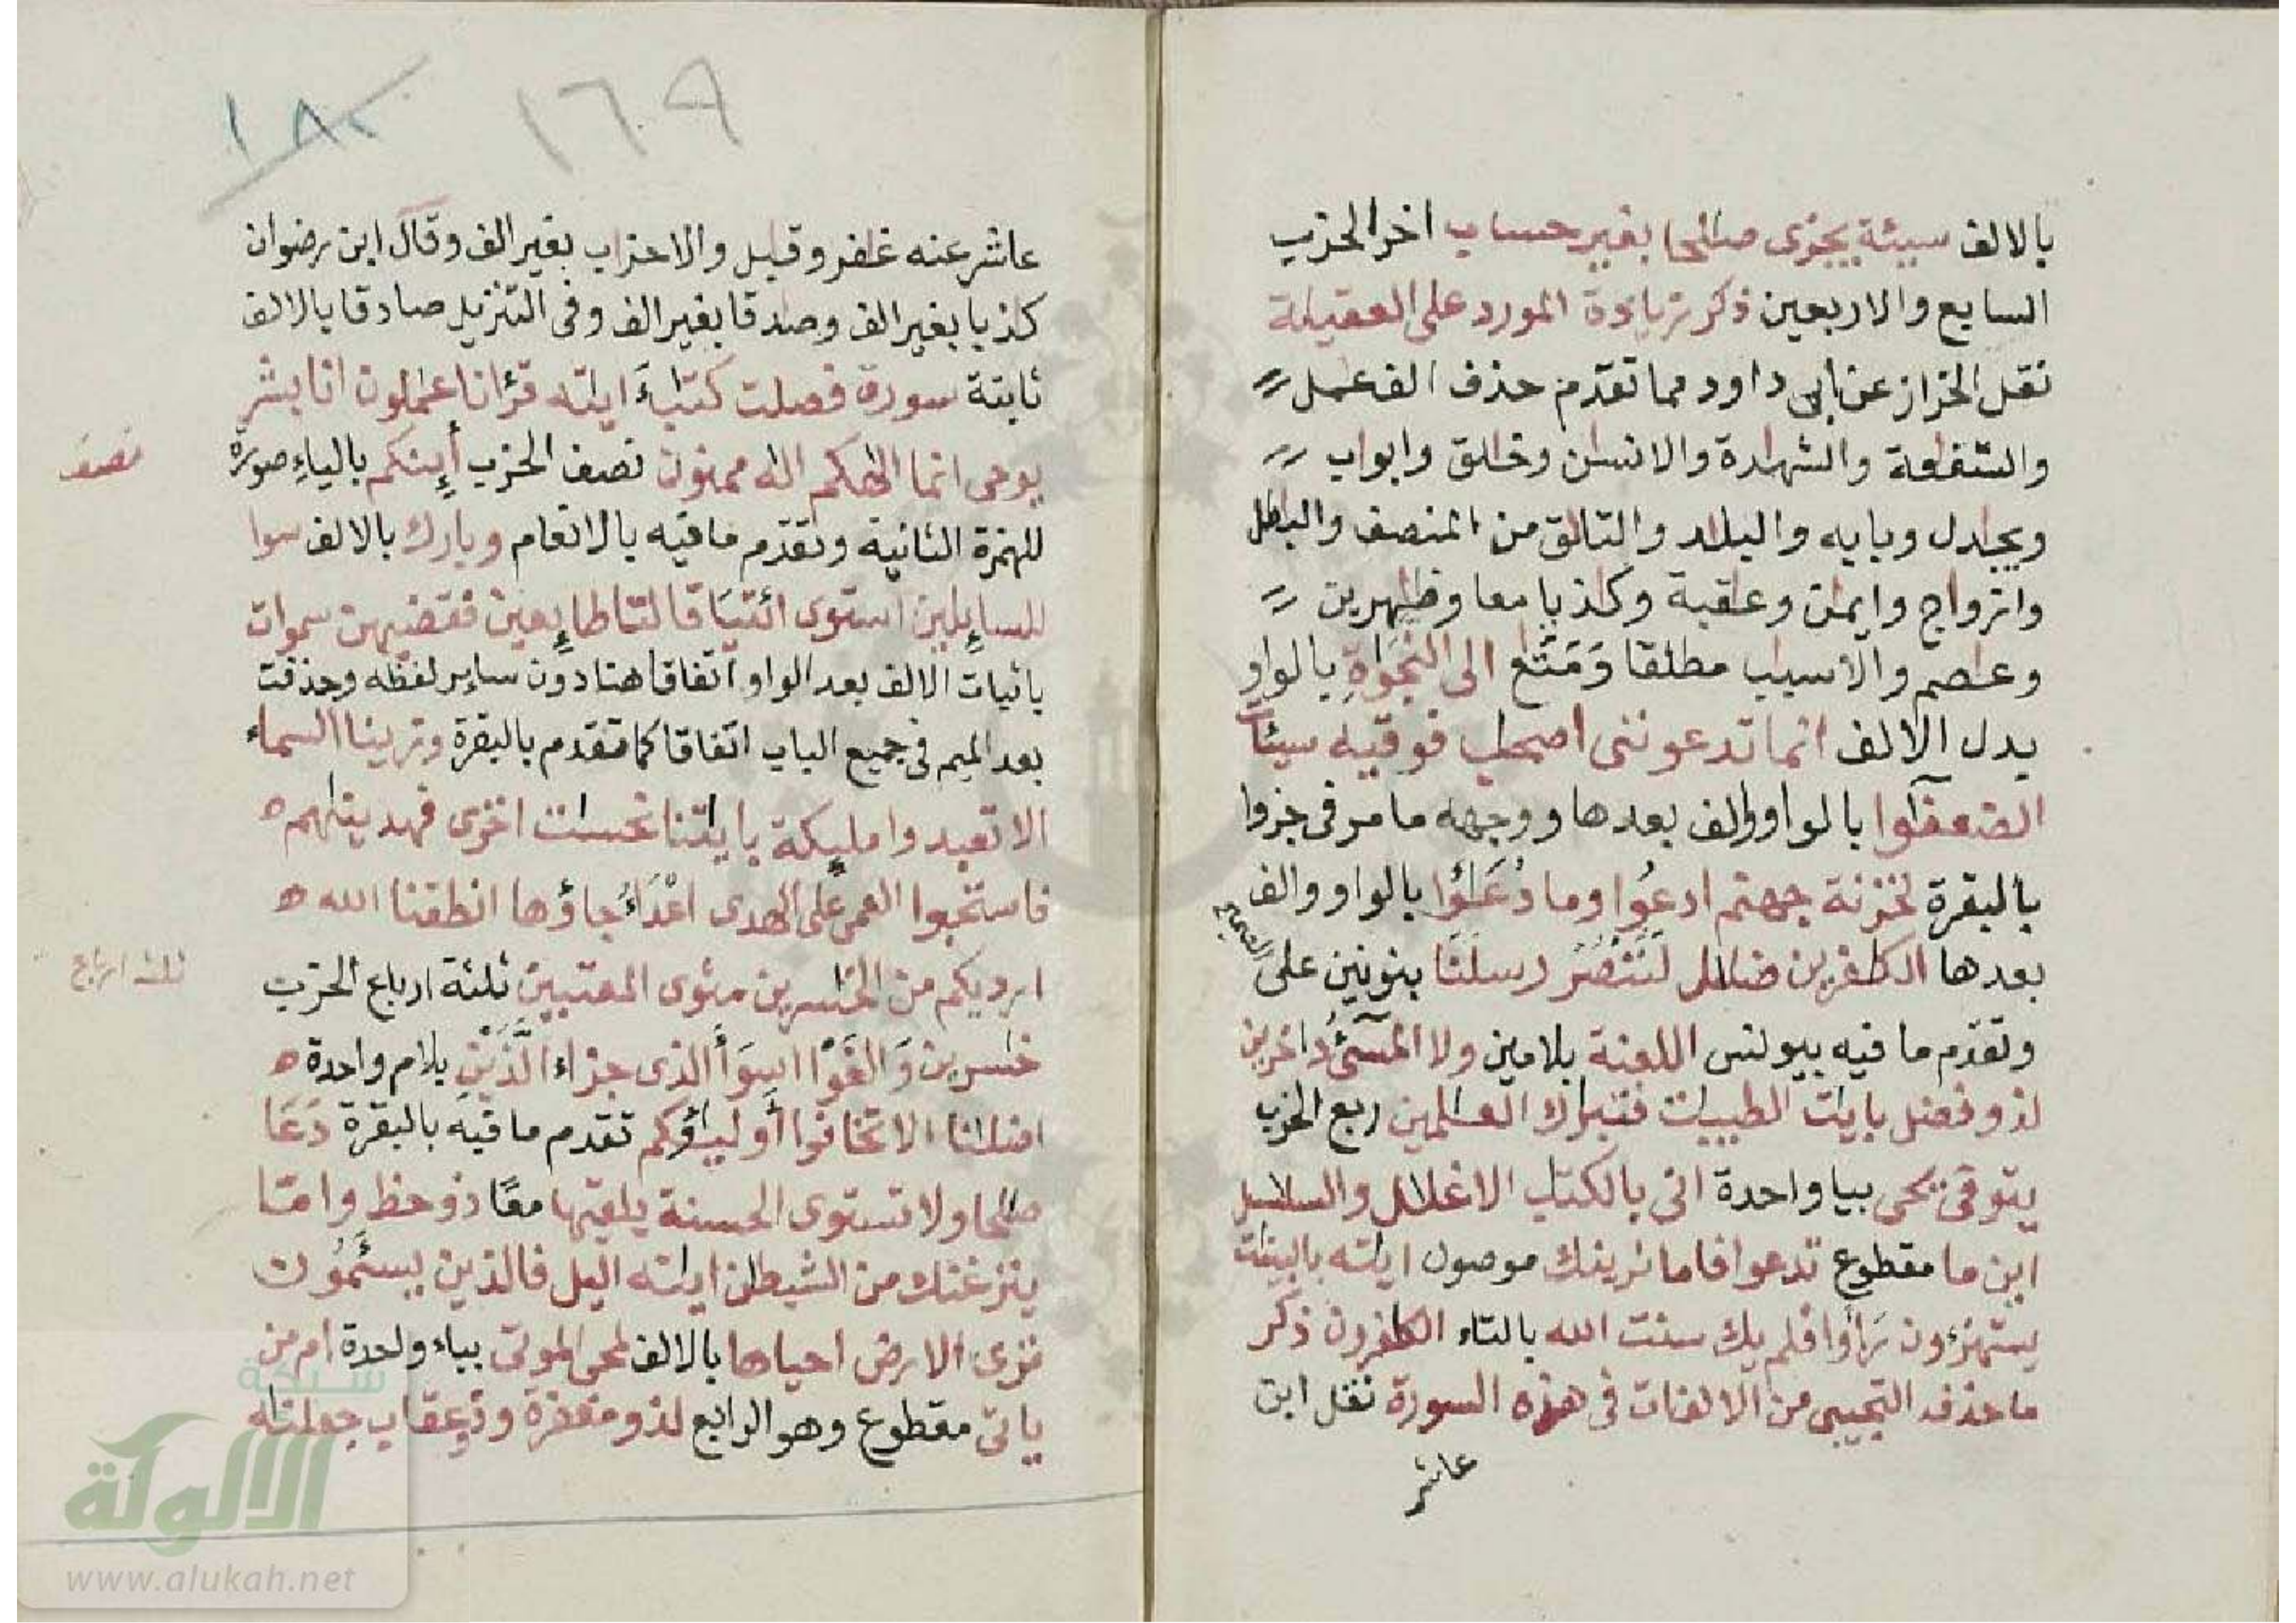 بالالف سيئة يجزى صالحا بغير حساب اخر الحزب
السابع والاربعين ذكر زيادة المورد على العقيلة
نقل الخراز عن ابى داود مما تقدم حذف الف عمل
والشفعة والشهدة والانسن وخلق وابواب
ويجدل وبايه والبلد والتلق من المنصف والبطل
وازواج وايمن وعقبة وكذبا معا وظهرين
وعصم والاسبب مطلقا وَمَتَع الى النجوةِ بالواو
بدل الالف انما تدعوننى اصحب فوقيه سيئات
الضعفؤا بالواو والف بعدها ووجهه ما مر فى جزوا
بالبقرة لخزنة جهنم ادعُوا وما دُعَؤُا بالواو والف
بعدها الكفرين ضلل لَنَنْصُرُ رسلَنَا بنونين على الصحيح
وتقدم ما فيه بيونس اللعنة بلامين ولا المسىُٔ داخرين
لذو فضل بايت الطيبت فتبرك العلمين ربع الحزب
يتوفى يحى بيا واحدة انى بالكتب الاغلل والسلسل
اين ما مقطوع تدعوا فاما نرينك موصول ايته بالبينت
يستهزءون رَأَوا فلم يك سنت الله بالتاء الكفرون ذكر
ما حذفه التجيبى من الالفات فى هذه السورة نقل ابن
عاشر
١٦٩
١٨٠
عاشر عنه غفر وقبل والاحزاب بغير الف وقال ابن رضوان
كذبا بغير الف وصدقا بغير الف وفى التنزيل صادقا بالالف
ثابتة سورة فصلت كتب ايته قرءنا عملون انا بشر
يوحى انما الهكم اله ممنون نصف الحزب أئِنكم بالياءِ صورة
نصف
للهمزة الثانية وتقدم ما فيه بالانعام وبارك بالالف سوا
للسايلين استوى ائتيَا قالتا طايعين فقضيهن سموات
باثبات الالف بعد الواو اتفاقا هنا دون ساير لفظه وحذفت
بعد الميم فى جميع الباب اتفاقا كما تقدم بالبقرة وزينا السماء
الا تعبدوا مليكة بايتنا نحسات اخزى فهدينهم
فاستحبوا العمى على الهدى اعْدَاءُ جاؤها انطقنا الله
ارديكم من الخسرين مثوى المعتبين ثلثة ارباع الحزب
ثلث ارباع
خسرين وَالغَوْا اسوَأ الذى جزاء الَّذَيْنِ بلام واحدة
اضلنا الا تخافوا أوليؤكم تقدم ما فيه بالبقرة دَعَا
صلحا ولا تستوى الحسنة يلقيها معًا ذو حظ واما
ينزغنك من الشيطن ايته اليل فالذين يسئمُون
نرى الارض احياها بالالف لمحى الموتى بياء واحدة ام من
ياتى مقطوع وهو الرابع لذو مغفرة وذو عقاب جعلنه
شبكة
الالوكة
www.alukah.net